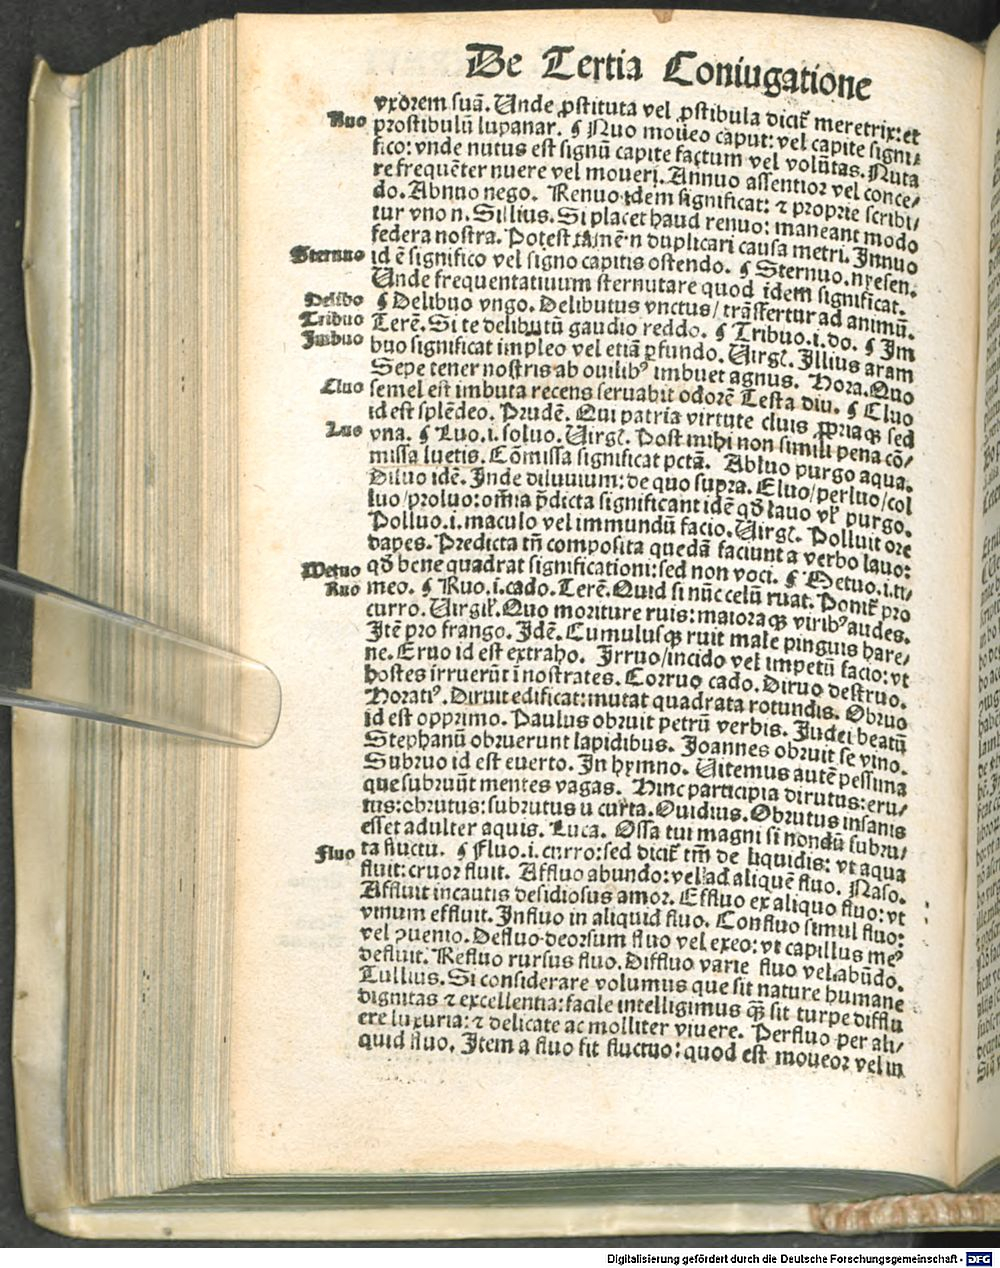 De Tertia Coniugatione
vxorem suā. Unde ꝓstituta vel ꝓstibula dicit̄ meretrix: et
Nuo prostibulū lupanar. ¶ Nuo moueo caput: vel capite signi/
fico: vnde nutus est signū capite factum vel volūtas. Nuta
re frequēter nuere vel moueri. Annuo assentior vel conce/
do. Abnuo nego. Renuo idem significat: ⁊ proprie scribi/
tur vno n. Sillius. Si placet haud renuo: maneant modo
federa nostra. Potest tamē n duplicari causa metri. Innuo
Sternuo id ē significo vel signo capitis ostendo. ¶ Sternuo. n presen.
Unde frequentatiuum sternutare quod idem significat.
Delibo ¶ Delibuo vngo. Delibutus vnctus/ trāsfertur ad animū.
Tribuo Terē. Si te delibutū gaudio reddo. ¶ Tribuo .i. do. ¶ Im
Imbuo buo significat impleo vel etiā ꝑfundo. Virgl̓. Illius aram
Sepe tener nostris ab ouilibꝰ imbuet agnus. Hora. Quo
Cluo semel est imbuta recens seruabit odorē Testa diu. ¶ Cluo
id est splēdeo. Prudē. Qui patria virtute cluis ꝓpriaqꝫ sed
Luo vna. ¶ Luo .i. soluo. Virgl̓. Post mihi non simili pena cō/
missa luetis. Cōmissa significat pctā. Abluo purgo aqua.
Diluo idē. Inde diluuium: de quo supra. Eluo/ perluo/ col
luo/ proluo: omīa p̄dicta significant idē qđ lauo vl̓ purgo.
Polluo .i. maculo vel immundū facio. Virgl̓. Polluit ore
dapes. Predicta tn̄ composita quedā faciunt a verbo lauo:
Metuo qđ bene quadrat significationi: sed non voci. ¶ Metuo .i. ti/
Ruo meo. ¶ Ruo .i. cado. Terē. Quid si nūc celū ruat. Ponit̄ pro
curro. Virgil̓. Quo moriture ruis: maioraqꝫ viribꝰ audes.
Itē pro frango. Idē. Cumulusqꝫ ruit male pinguis hare/
ne. Eruo id est extraho. Irruo/ incido vel impetū facio: vt
hostes irruerūt ī nostrates. Corruo cado. Diruo destruo.
Noratiꝰ. Diruit edificat: mutat quadrata rotundis. Obruo
id est opprimo. Paulus obruit petrū verbis. Iudei beatū
Stephanū obruerunt lapidibus. Ioannes obruit se vino.
Subruo id est euerto. In hymno. Vitemus autē pessima
que subruūt mentes vagas. Hinc participia dirutus: eru/
tus: obrutus: subrutus u curta. Ouidius. Obrutus insanis
esset adulter aquis. Luca. Ossa tui magni si nondū subru/
Fluo ta fluctu. ¶ Fluo .i. curro: sed dicit̄ tm̄ de liquidis: vt aqua
fluit: cruor fluit. Affluo abundo: vel ad aliquē fluo. Naso.
Affluit incautis desidiosus amor. Effluo ex aliquo fluo: vt
vinum effluit. Influo in aliquid fluo. Confluo simul fluo:
vel ꝯuenio. Defluo deorsum fluo vel exeo: vt capillus meꝰ
defluit. Refluo rursus fluo. Diffluo varie fluo vel abūdo.
Tullius. Si considerare volumus que sit nature humane
dignitas ⁊ excellentia: facile intelligimus qꝫ̄ sit turpe difflu
ere luxuria: ⁊ delicate ac molliter viuere. Perfluo per ali/
quid fluo. Item a fluo fit fluctuo: quod est moueor vel in
Digitalisierung gefördert durch die Deutsche Forschungsgemeinschaft - DFG